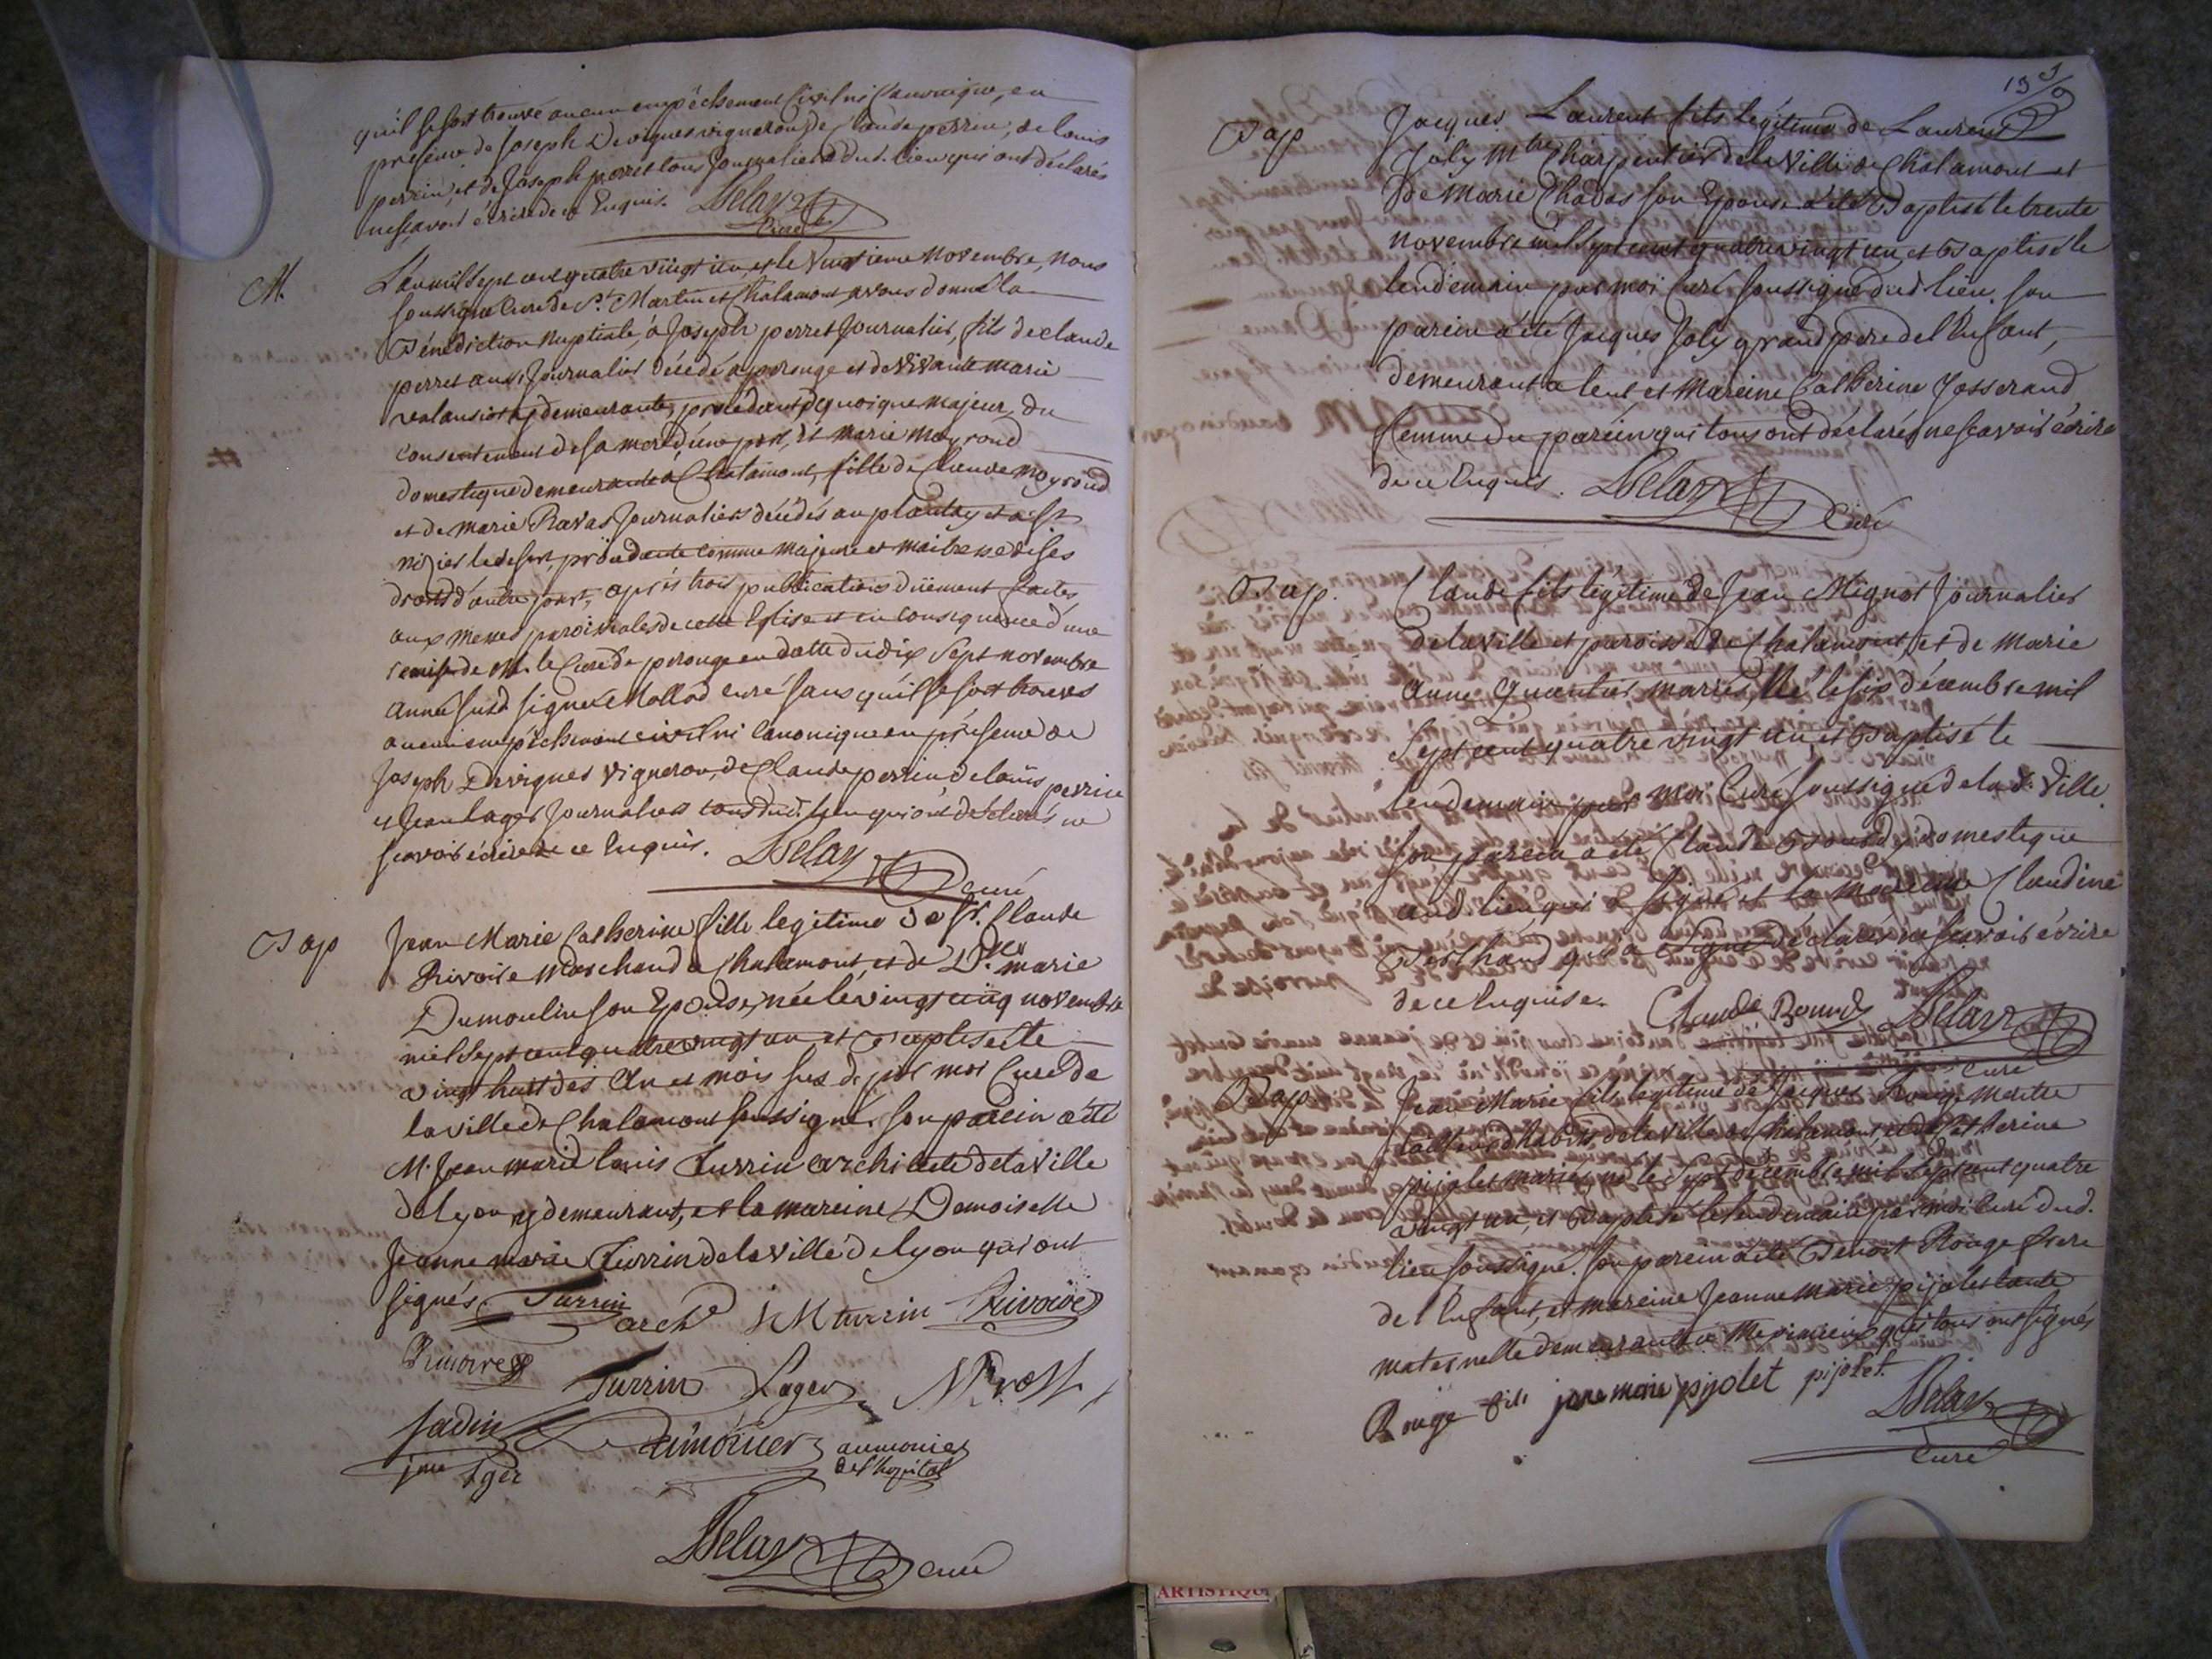 qu'il se soit trouvé aucun empêchement Civil ni Canonique, en
présence de Joseph Devignes vigneron, de Claude perrin, de louis
perrin, et de Joseph perret tous Journaliers dud. lieu qui ont déclarés
ne sçavoir écrire de ce Enquis. Delay
Curé
M. L'an mil sept cent quatre vingt un, et le Vingtieme Novembre, Nous
soussigné Curé de St. Martin et Chalamont avons donné la
Bénédiction Nuptiale, à Joseph perret Journalier, fils de claude
perret aussi Journalier décédé a perouge et de vivante marie
y demeurante, procédant quoique majeur, du
consentement de sa mere, d'une part, et marie moyroud
domestique demeurante a Chalamont, fille de Claude moyroud
et de marie Ravas Journaliers décédés au plantay et a st
nizier le desert, procedante comme majeure et maitresse de ses
droits d'autre part, après trois publications düement faites
aux messes paroissiales de cette Eglise et en consequence d'une
remise de Mr. le Curé de perouge en datte du dix sept novembre
année susd. signée Mollod curé sans qu'il se soit trouvés
aucun empêchement civil ni Canonique en présence de
Joseph Devignes Vigneron, de Claude perrin de louis perrin
et Jean Lager Journaliers tous dud. lieu qui ont déclarés ne
scavoir écrire de ce Enquis. Delay
curé
Bap Jean Marie Catherine fille legitime de Sr. Claude
Rivoire marchand a Chalamont, et de Dlle marie
Dumoulin son Epouse, née le vingt cinq novembre
mil sept cent quatre vingt un et Baptisée le
vingt huit des An et mois sus d. par moi Curé de
la ville de Chalamont soussigné. son parein a été
M. Jean marie louis Turrin architecte de la Ville
de Lyon y demeurant, et la mareine Demoiselle
Jeanne marie Turrin de la ville de lyon qui ont
signés. Turrin arche J M turrin Rivoire
Rivoire
Turrin Lager
Jadin aumonier
de l'hopital
Delay curé
13
Bap Jacques Laurent fils légitime de Laurent
Joly Mtre Charpentier de la Ville de Chalamont et
de Marie Chadas son Epouse a été Baptisé le trente
novembre mil sept cent quatre vingt un, et Baptisé le
lendemain par moi Curé soussigné dud. lieu. son
parein a été Jacques Joly grand pere de l'Enfant,
demeurant a lent et Mareine Catherine Josserand
femme du parein qui tous ont déclarés ne scavoir écrire
de ce Enquis. Delay
Curé
Bap. Claude fils légitime de Jean Mignot Journalier
de la ville et paroisse de Chalamont, et de Marie
Anne mariés, Né le six décembre mil
Sept cent quatre vingt un et Baptisé le
lendemain par moi Curé soussigné de lad. Ville.
son parein a été Claude Bourdy domestique
aud. lieu qui a signé et la Mareine Claudine
Berthaud qui a déclarés ne scavoir écrire
de ce Enquise. Claude Delay
Curé
Bap Jean Marie fils légitime de Jacques Rouge Maitre
tailleur d'habits de la Ville de Chalamont et de Catherine
pijolet mariés, né le sept décembre mil sept cent quatre
vingt un, et Baptisé le lendemain par moi Curé dud.
lieu soussigné. son parein a été Benoit Rouge frere
de l'Enfant, et mareine Jeanne Marie pijolet tante
maternelle demeurante a Meximieux qui tous ont signés
Rouge fils jane marie pijolet pijolet. Delay
Curé